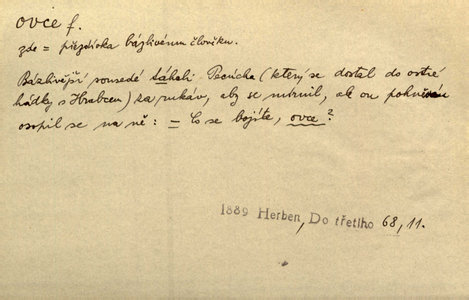 ovce f.
zde = přezdívka bázlivému člověku.
Bázlivější sousedé táhali Pecucha (který se dostal do ostré
hádky s Hrabcem) za rukáv, aby se mírnil, ale on
osopil se na ně: = Co se bojíte, ovce?
1889 Herben, Do třetího 68, 11.